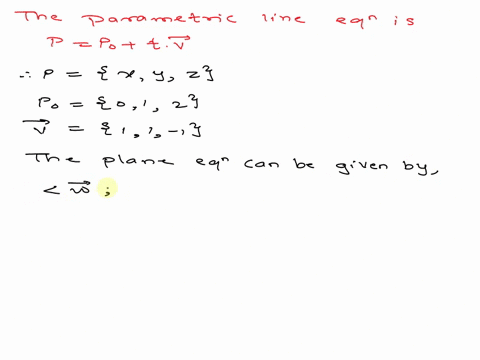 The parametric line eqn is
P = P₀ + t.v⃗
∴ P = {x, y, z}
P₀ = {0, 1, 2}
v⃗ = {1, 1, -1}
The plane eqn can be given by,
< w⃗ ;